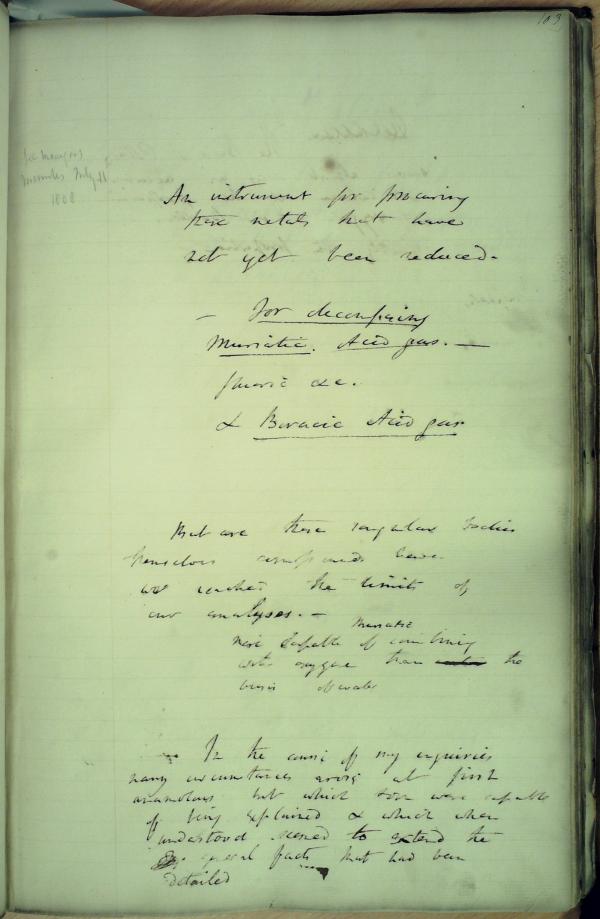 103
An instrument for procuring
those metals that have
not yet been reduced.
— For decomposing
Muriatic. Acid gas. —
fluoric &c.
& Boracic Acid gas
But are these singular bodies
themselves compounds have
we reached the limits of
our analyses. —
Muriatic
more capable of combining
with oxygene than the
basis of water
In the course of my enquiries
many circumstances arose at first
anamolous but which soon were capable
of being explained & which when
understood seemed to extend the
general facts that had been
detailed